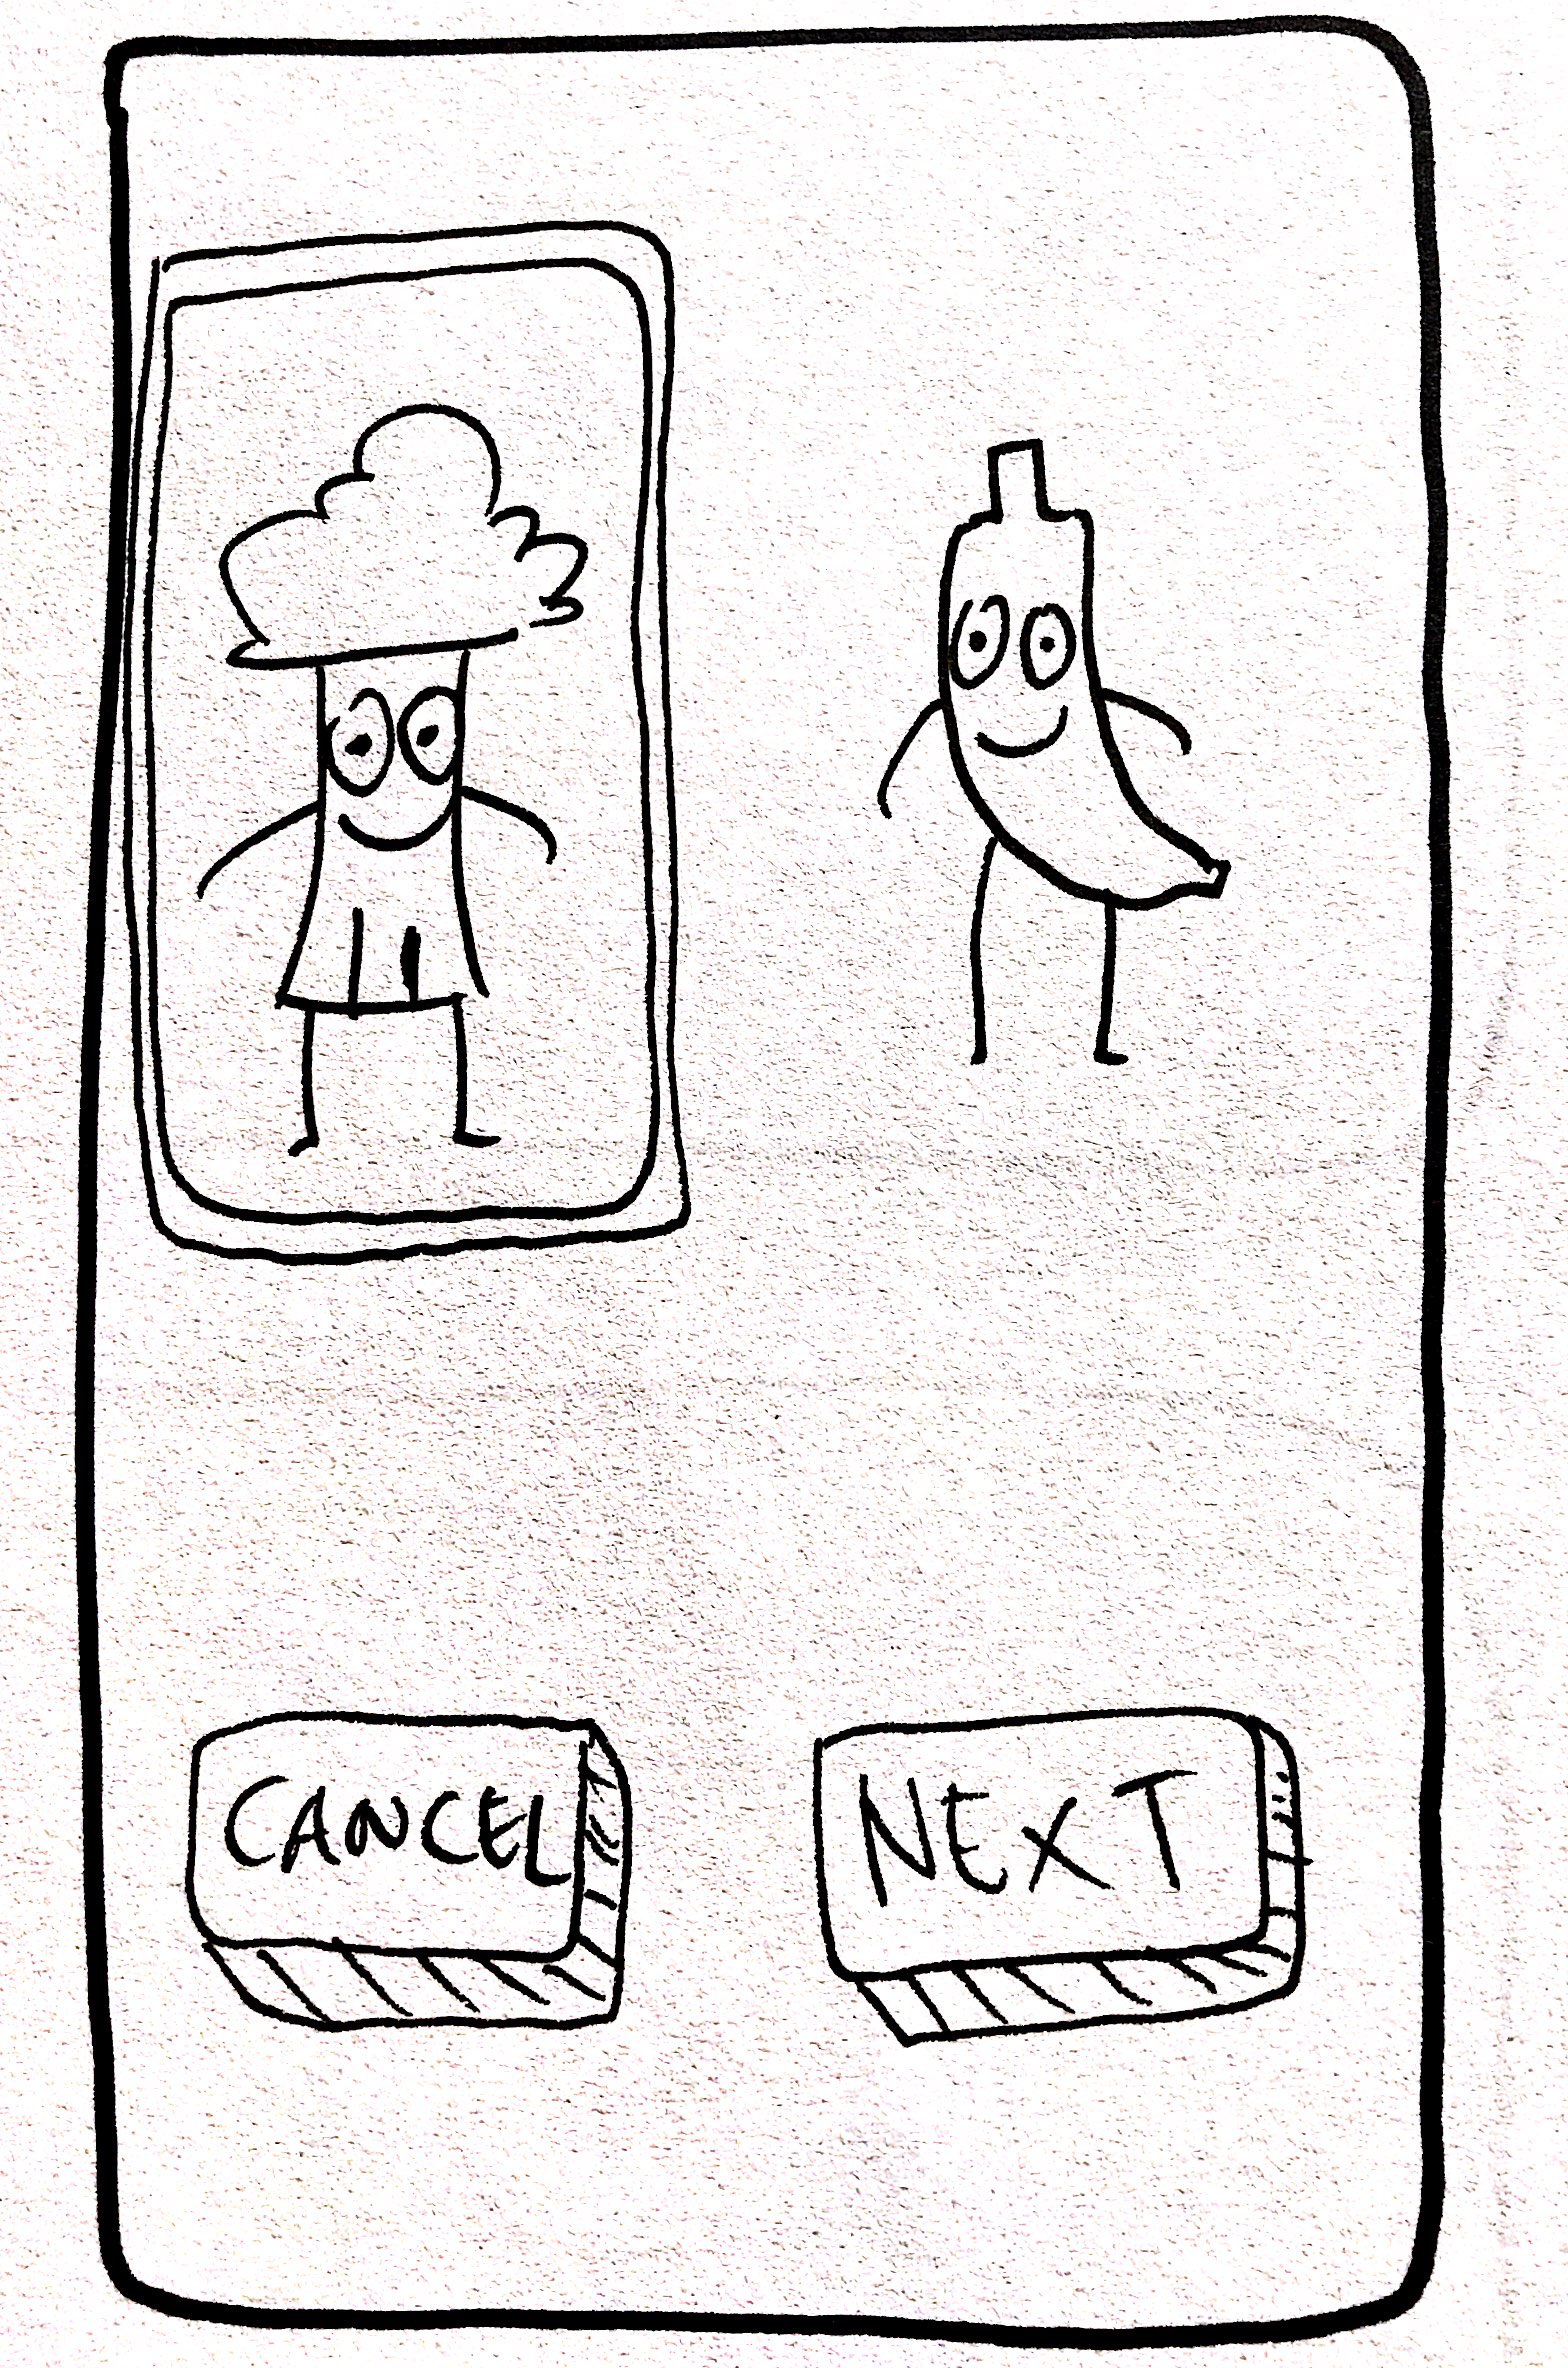 CANCEL
NEXT